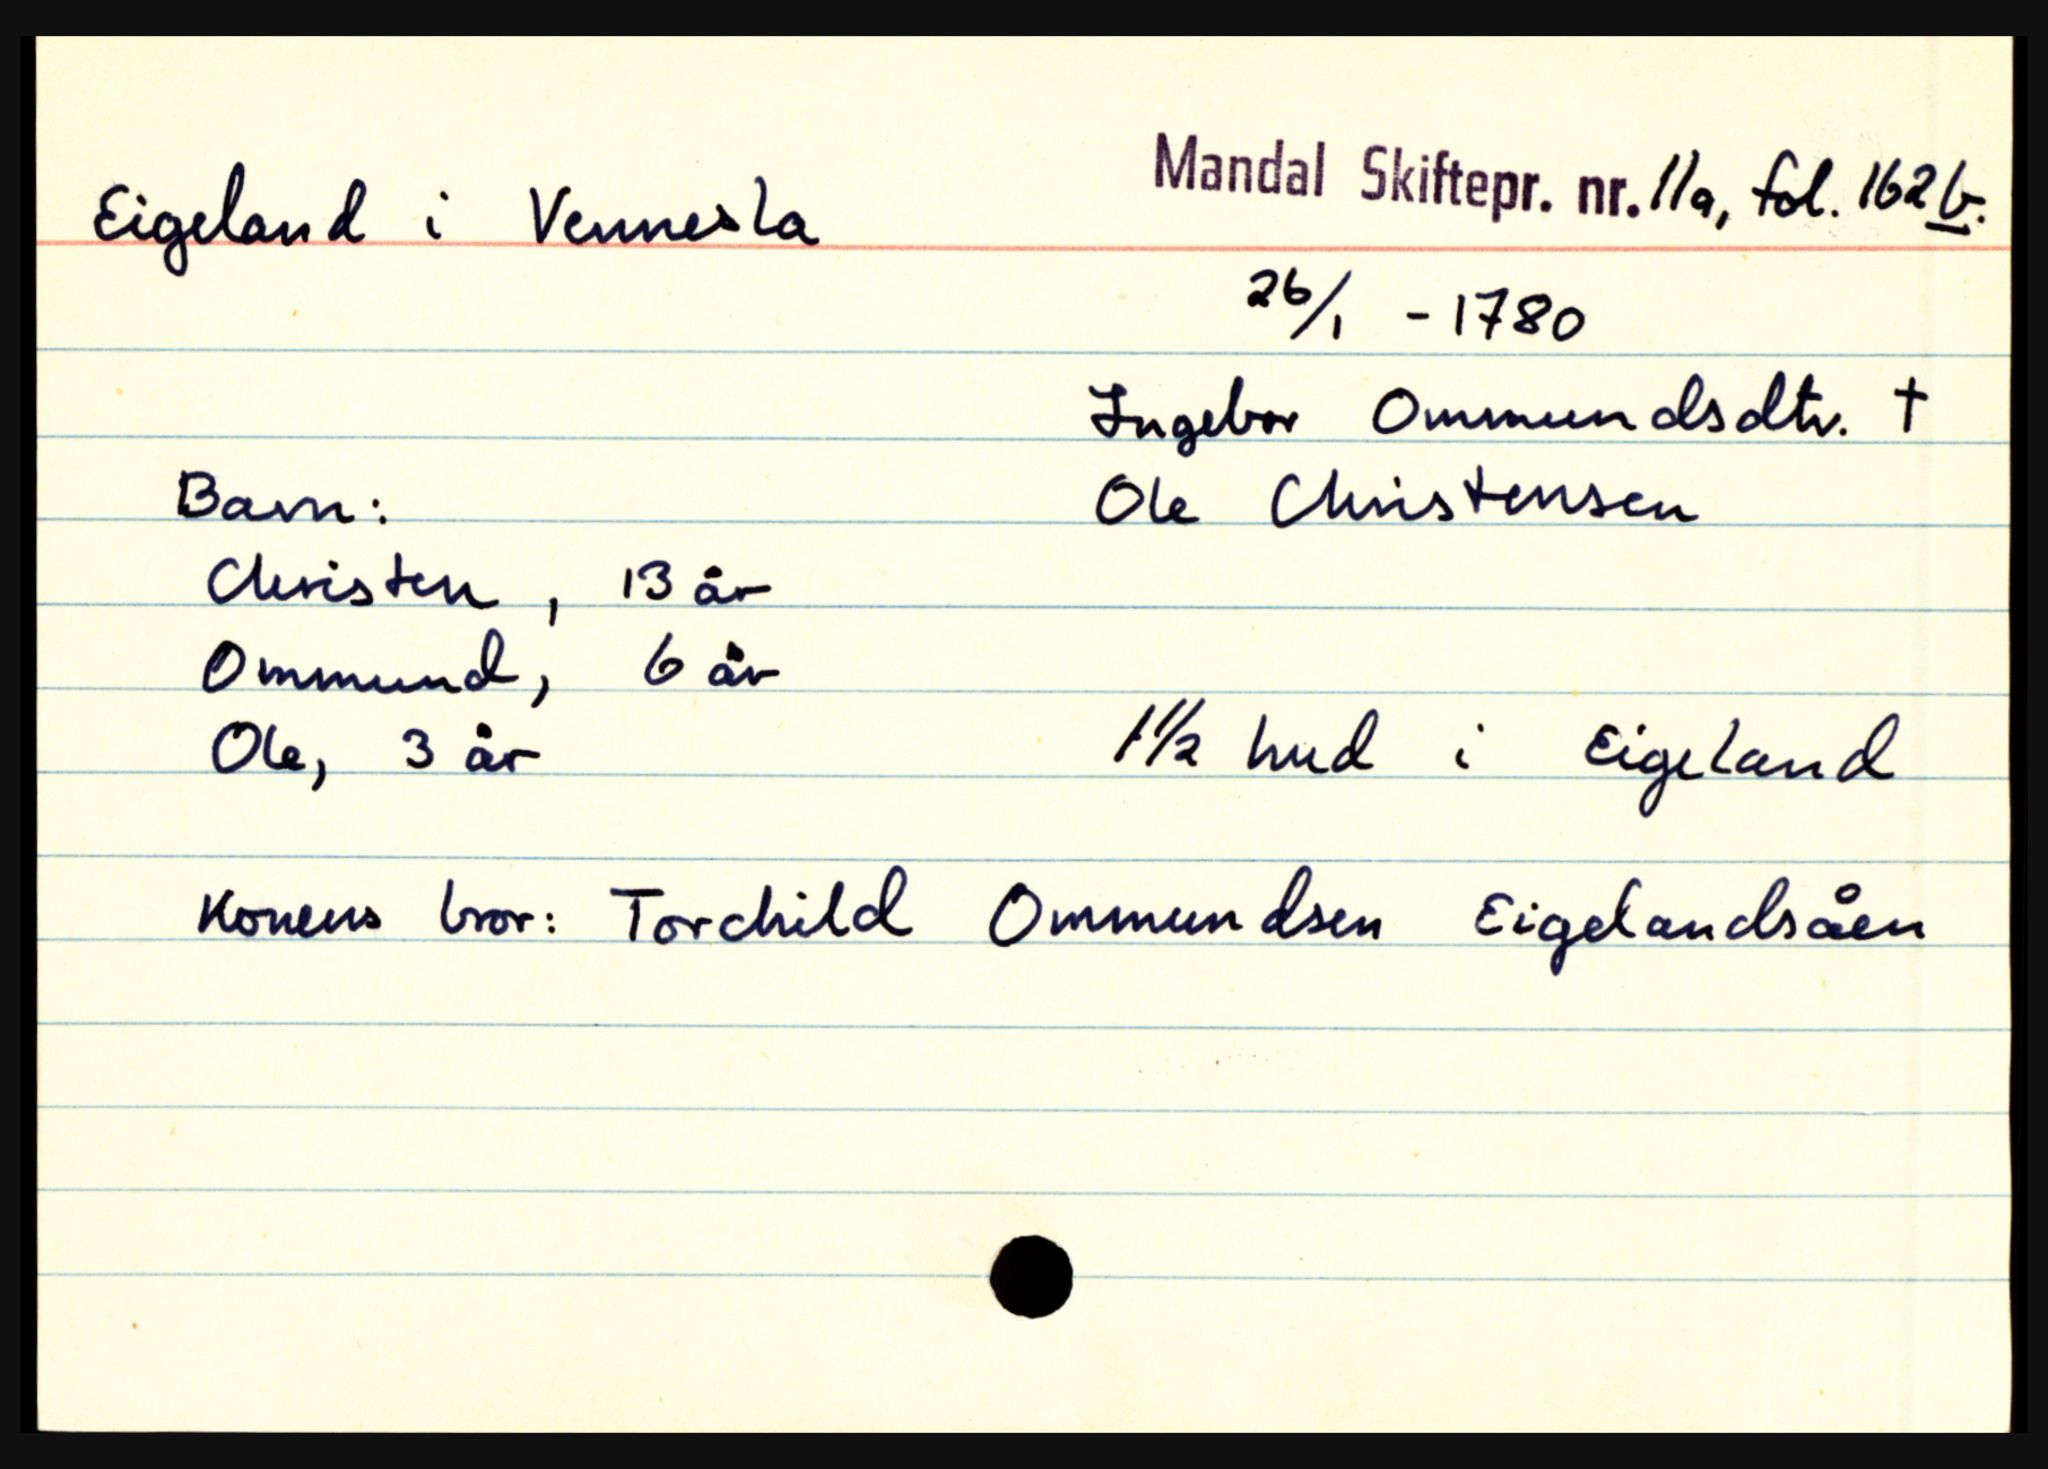 Eigeland i Vennesla Mandal Skiftepr. nr. 11a, fol. 162b.
26/1 - 1780
Ingebor Ommundsdtr. †
Barn: Ole Christensen
Christen, 13 år
Ommund, 6 år
Ole, 3 år 1 1/2 hud i Eigeland
Konens bror: Torchild Ommundsen Eigelandsåen